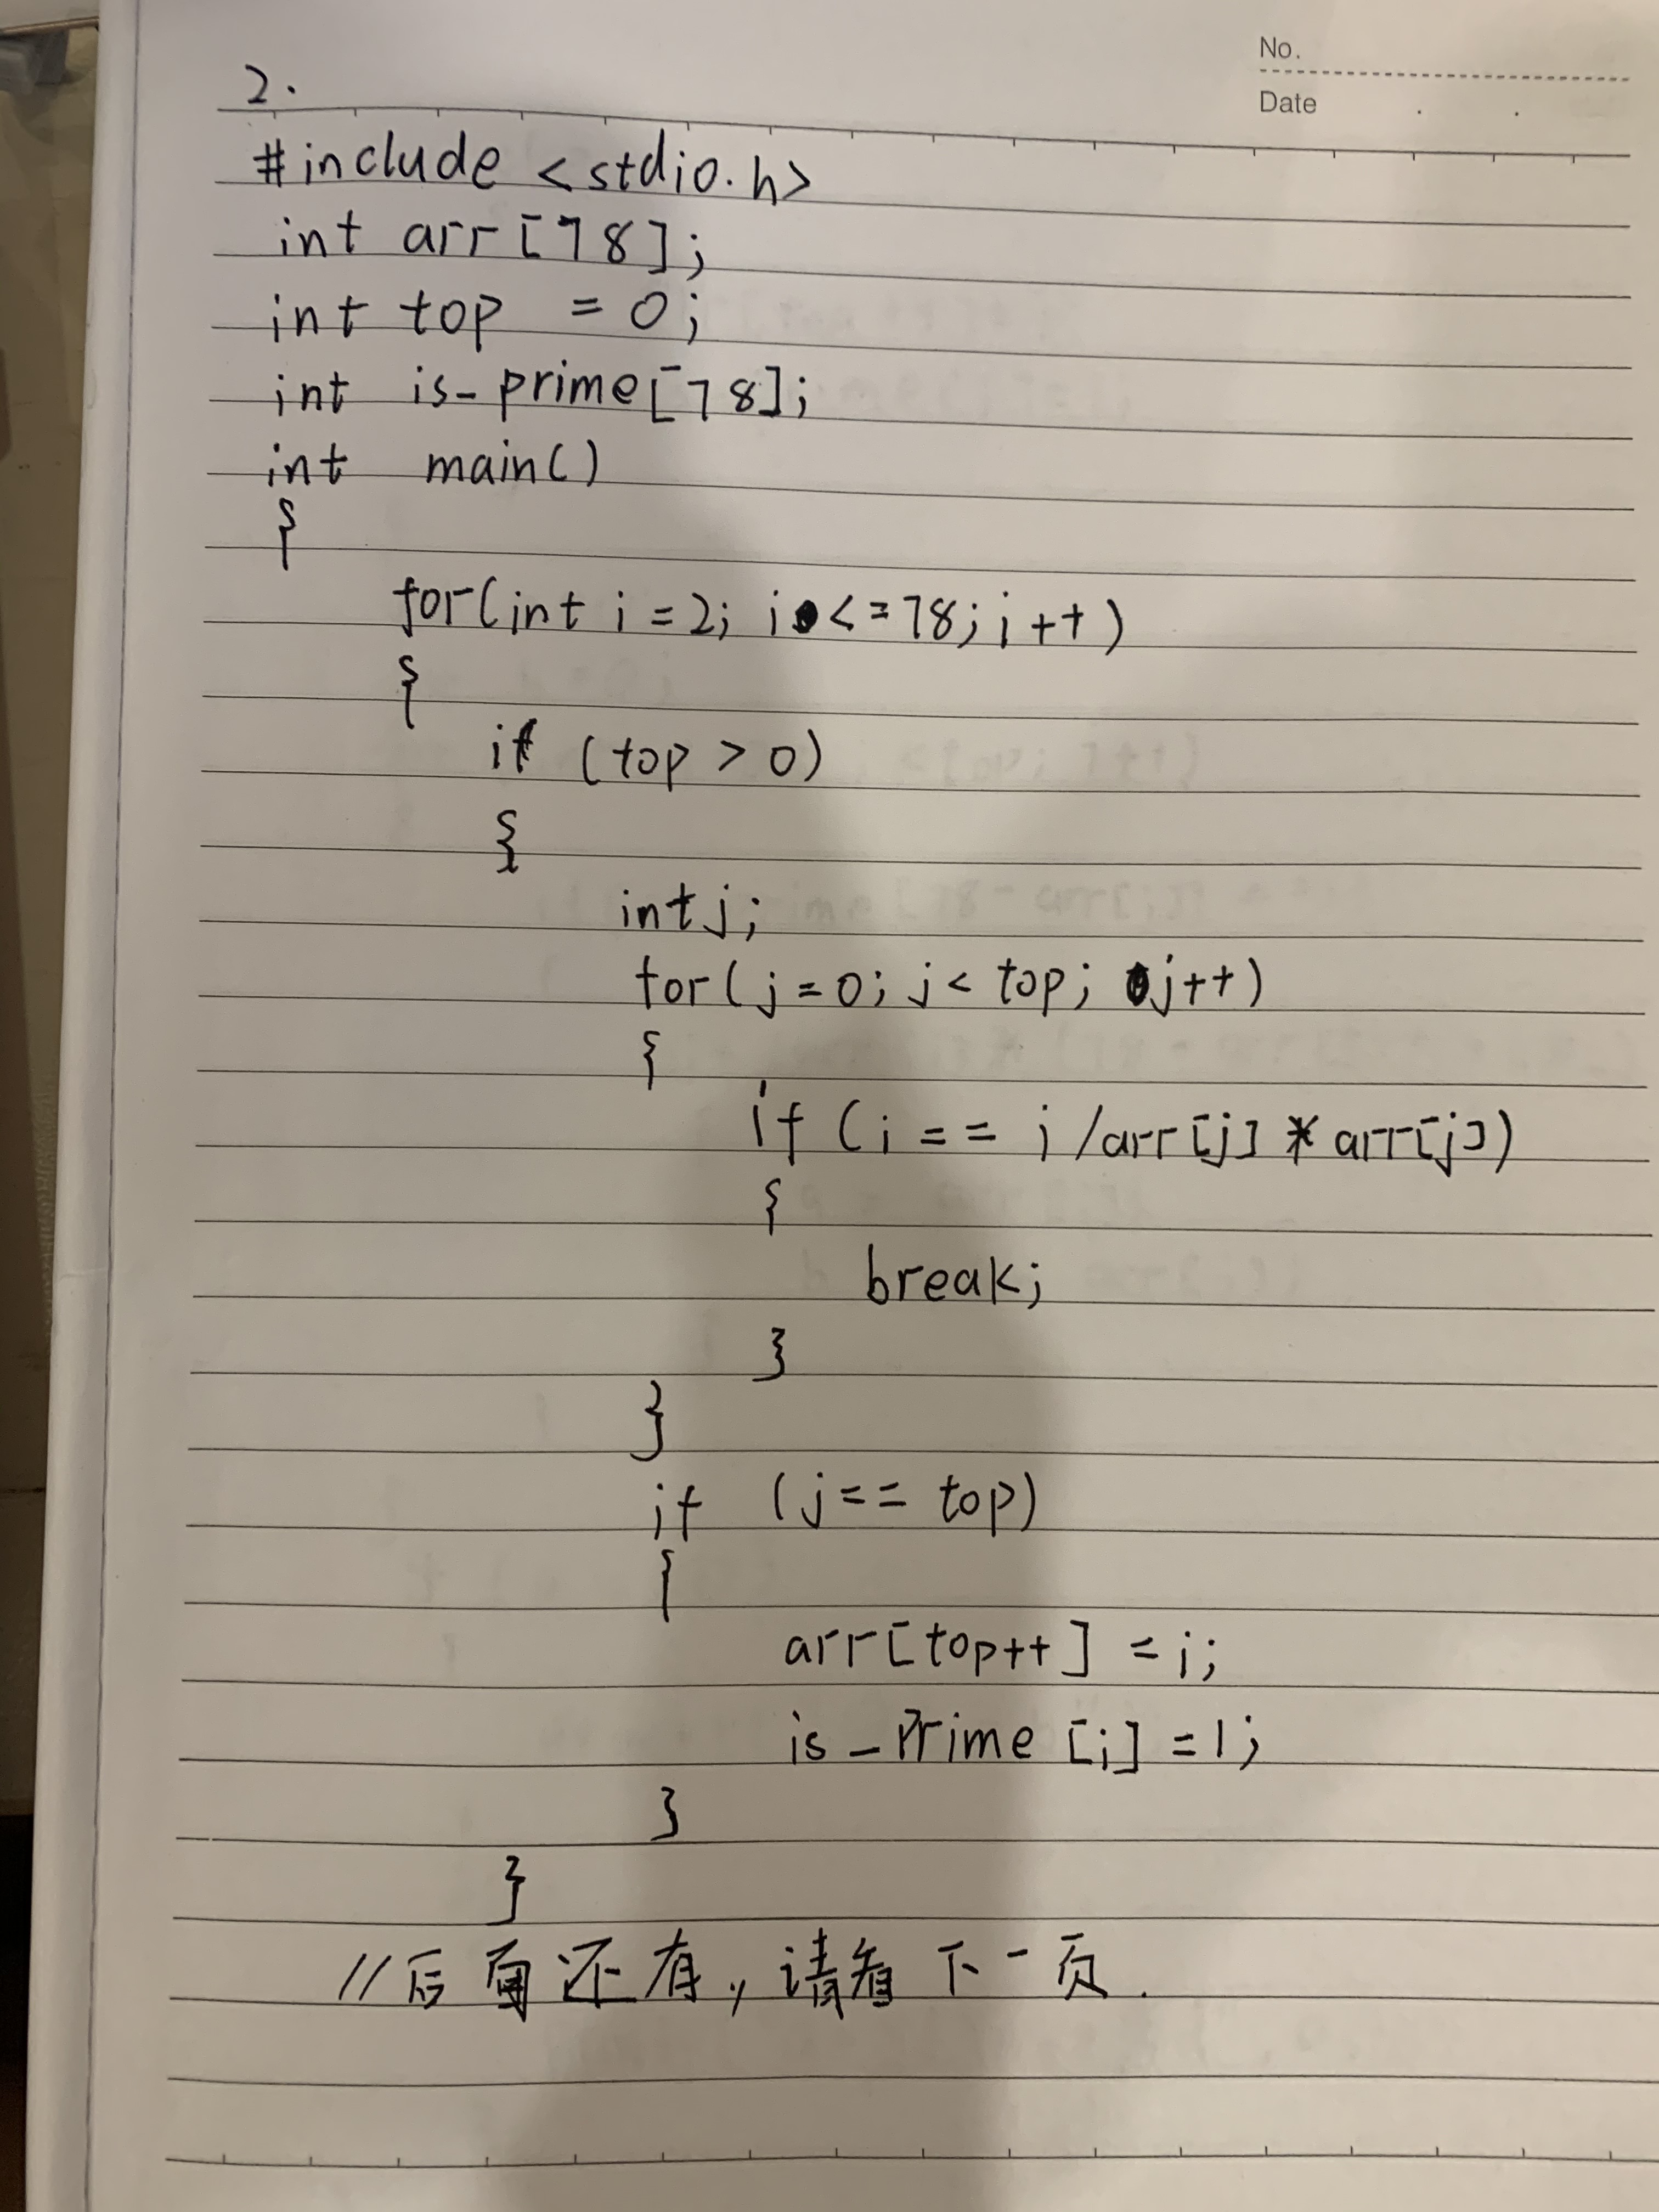 No.
Date
2.
#include <stdio.h>
int arr[78];
int top = 0;
int is_prime[78];
int main()
{
for(int i=2; i<=78; i++)
{
if (top > 0)
{
int j;
for(j=0; j< top; j++)
{
if (i == i/arr[j] * arr[j])
{
break;
}
}
if (j== top)
{
arr[top++] = i;
is_Prime [i] =1;
}
}
//后面还有,请看下一页.